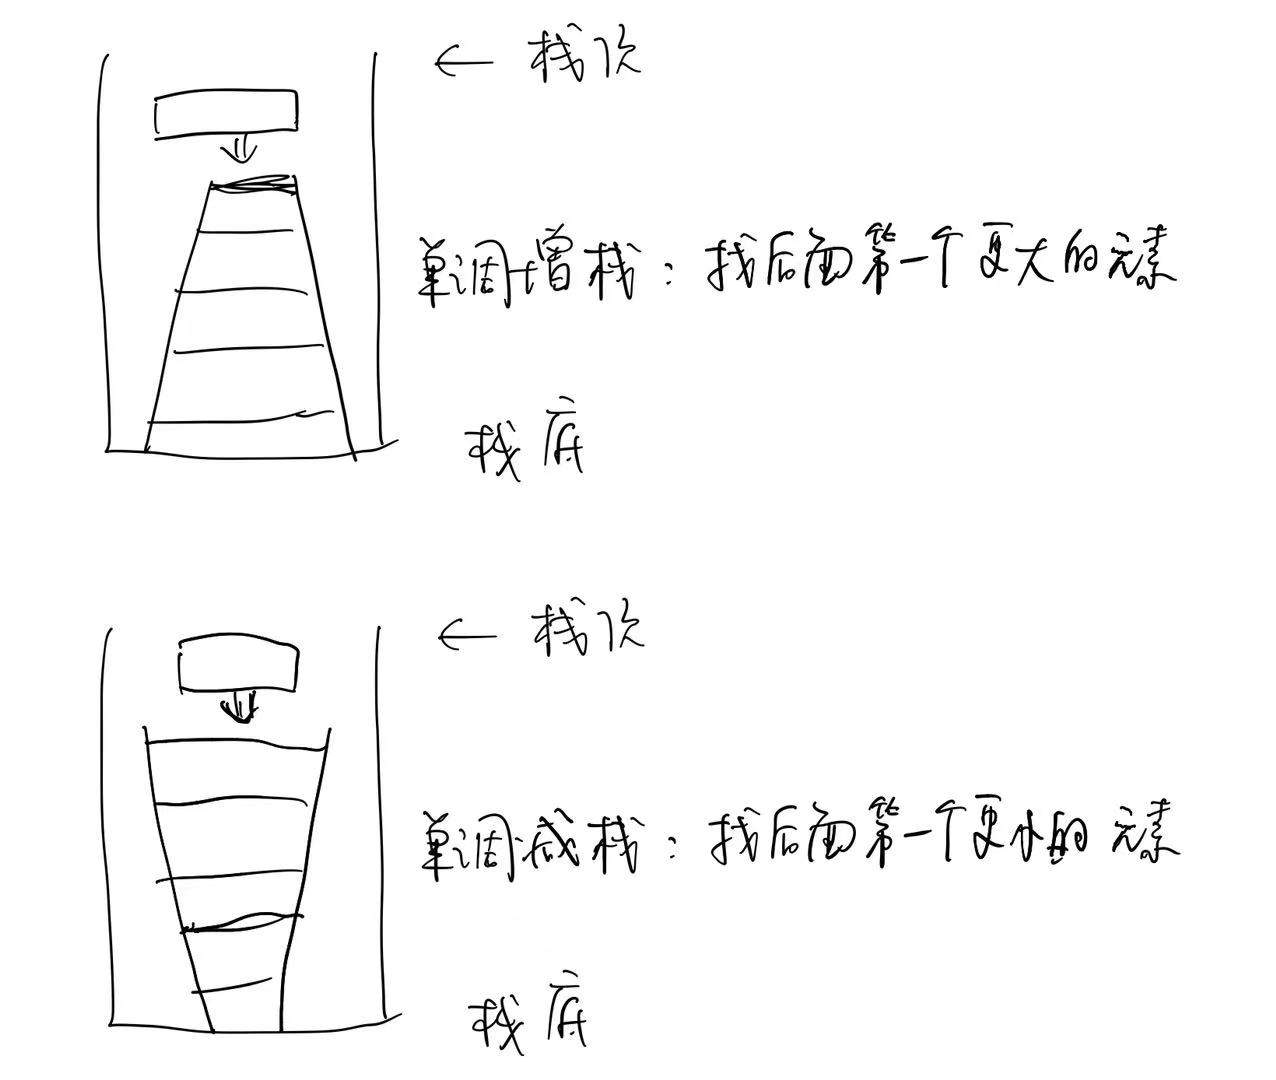 ← 栈顶
单调增栈：找后面第一个更大的元素
栈底
← 栈顶
单调减栈：找后面第一个更小的元素
栈底